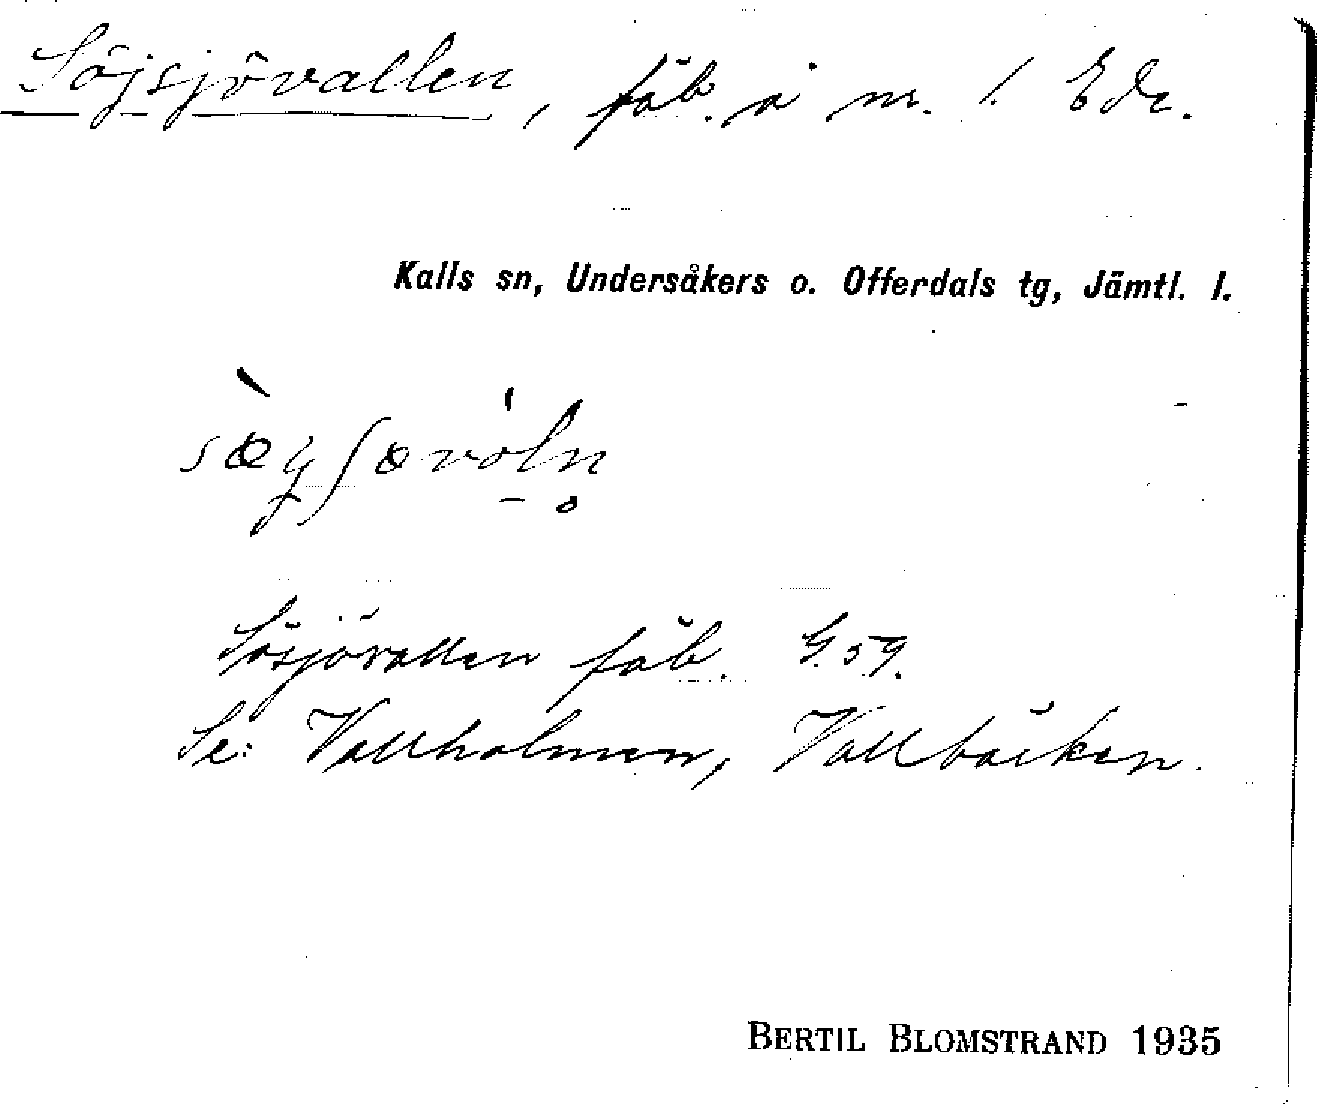 Söjsjövallen, fäb. å nr. 1. Ede.
Kalls sn, Undersåkers o. Offerdals tg, Jämtl. l.
Sösjövallen fäb. G. 59.
Se: Vallholmen, Vallbäcken.
BERTIL BLOMSTRAND 1935